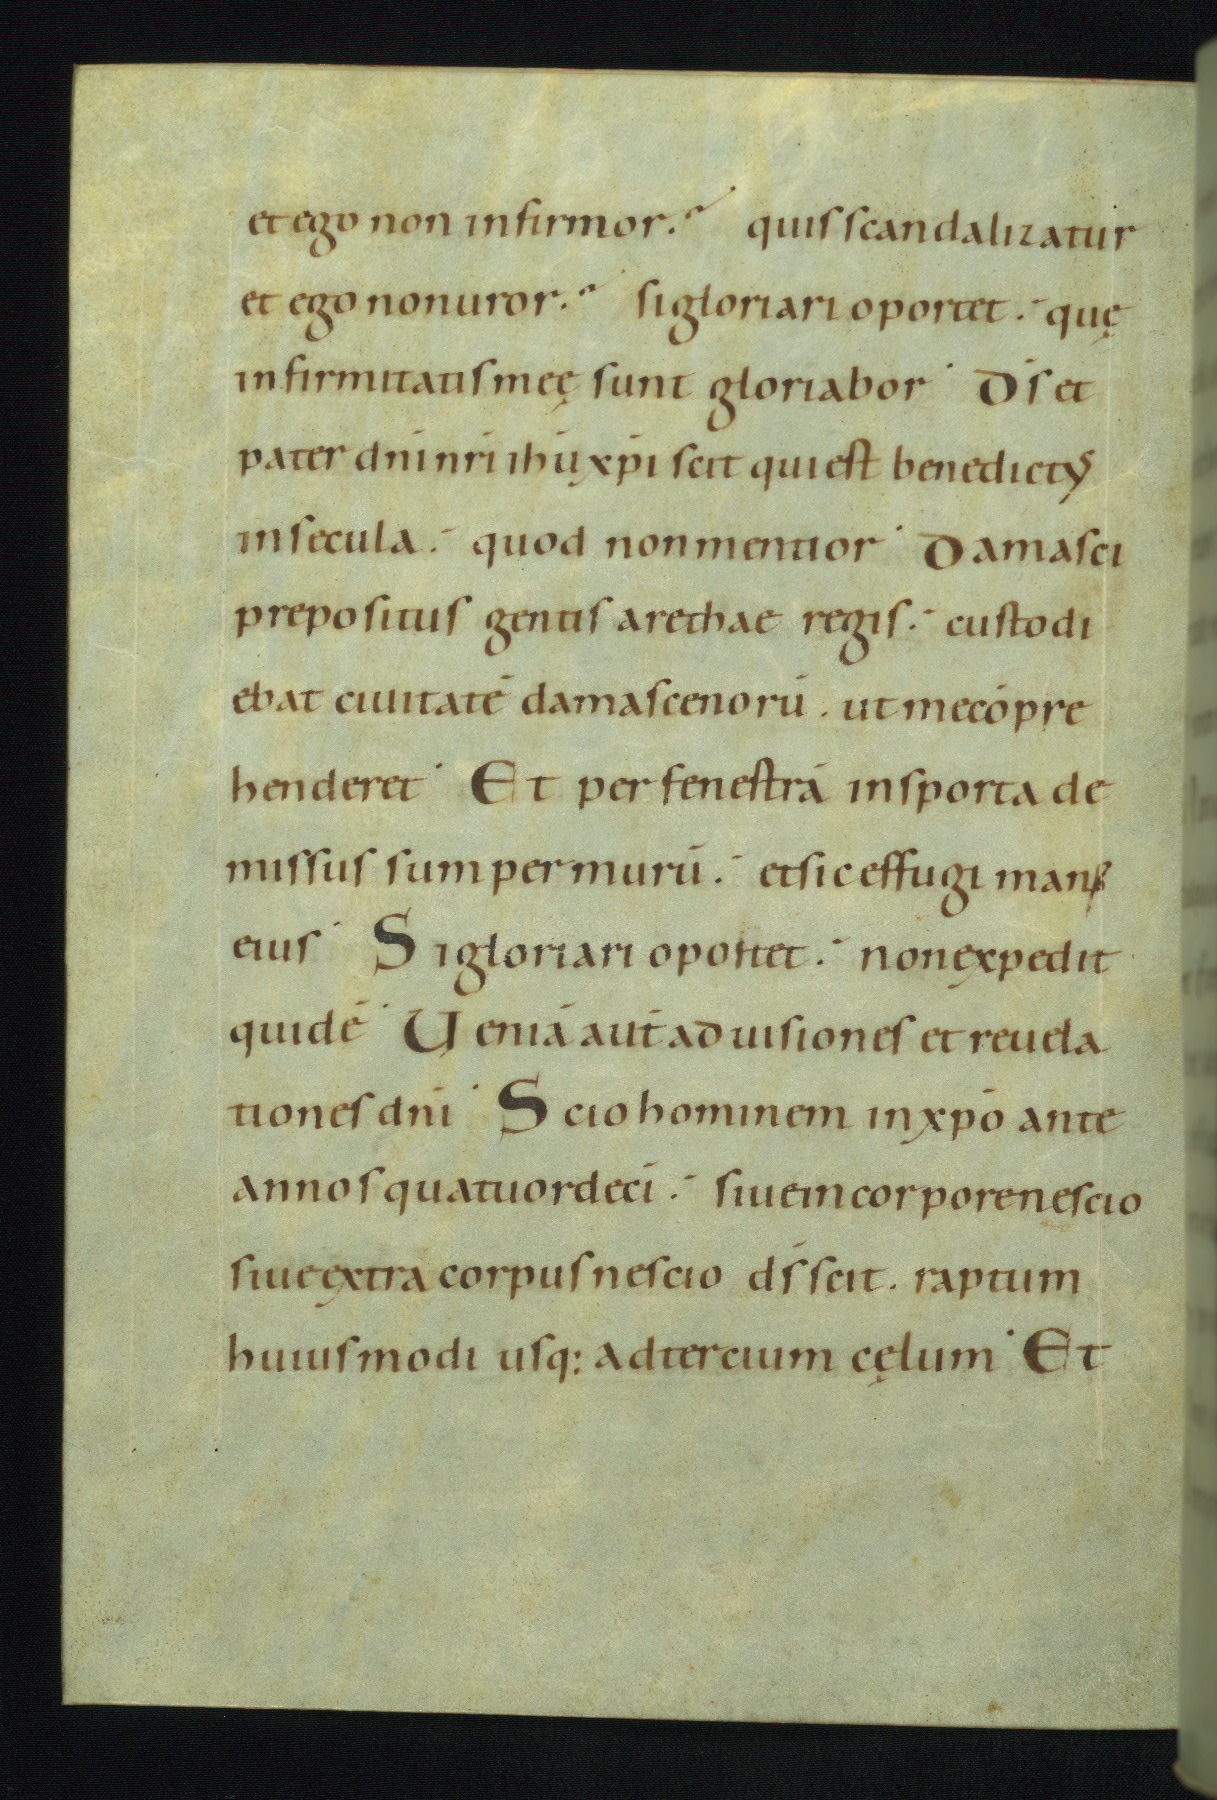 et ego non infirmor.᷄ quis scandalizatur
et ego non uror.᷄ si gloriari oportet. quę
infirmitatis meę sunt gloriabor. Ds̄ et
pater dn̄i nr̄i ih̄u xp̄i scit qui est benedictꝰ
in secula. quod non mentior. Damasci
prepositus gentis arethae regis. custodi
ebat ciuitatē damascenorū. ut me cōpre
henderet. Et per fenestrā in sporta de
missus sum per murū. et sic effugi manꝰ
eius. Si gloriari oportet. non expedit
quidē. Ueniā aut̄ ad uisiones et reuela
tiones dn̄i. Scio hominem in xp̄o ante
annos quatuordecī. siue in corpore nescio
siue extra corpus nescio ds̄ scit. raptum
huiusmodi usq; ad tercium cęlum. Et